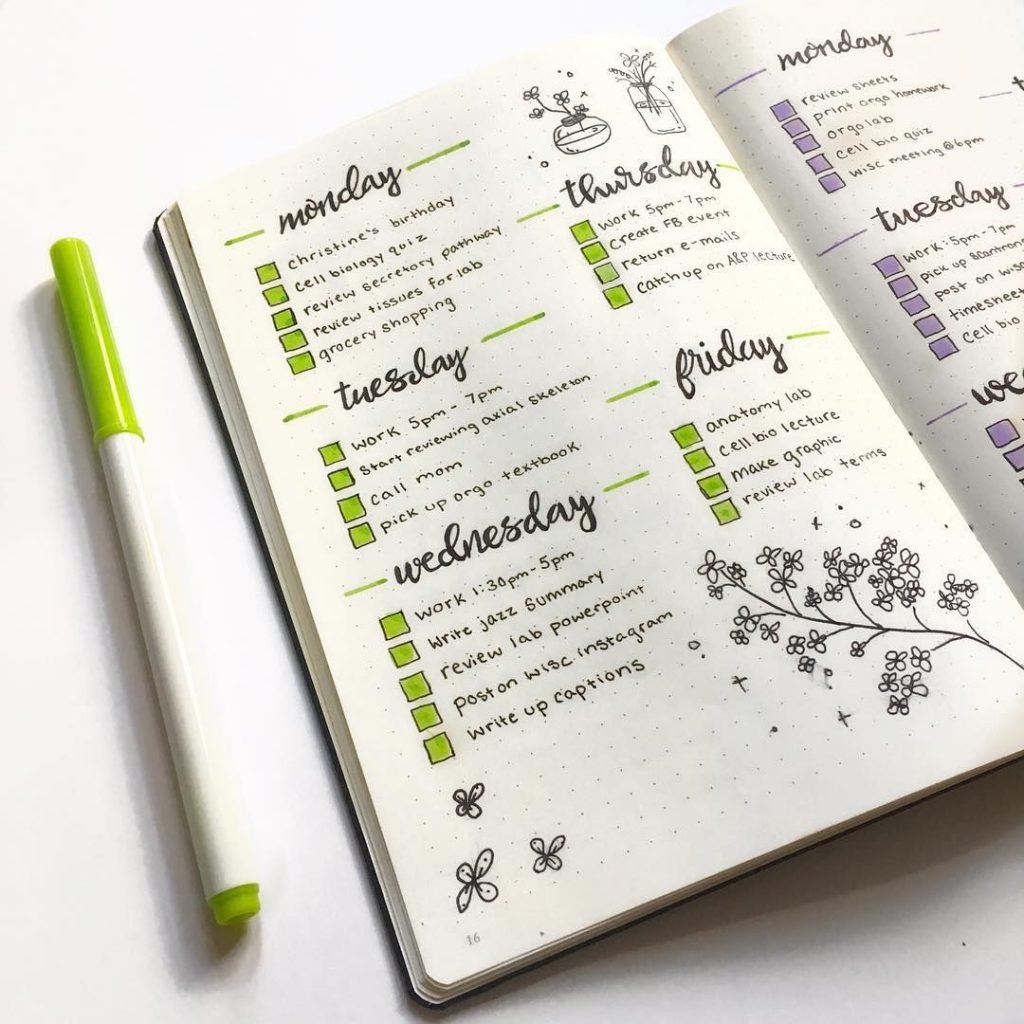 monday
christine's birthday
cell biology quiz
review secretory pathway
review tissues for lab
grocery shopping
tuesday
work 5pm - 7pm
start reviewing axial skeleton
call mom
pick up orgo textbook
wednesday
work 1:30pm - 5pm
write jazz summary
review lab powerpoint
post on wisc instagram
write up captions
16
thursday
work 5pm - 7pm
create FB event
return e-mails
catch up on A&P lecture
friday
anatomy lab
cell bio lecture
make graphic
review lab terms
monday
review sheets
print orgo homework
orgo lab
cell bio quiz
wisc meeting @ 6pm
tuesday
work: 5pm - 7pm
pick up scantron
post on wisc
timesheet
cell bio
we